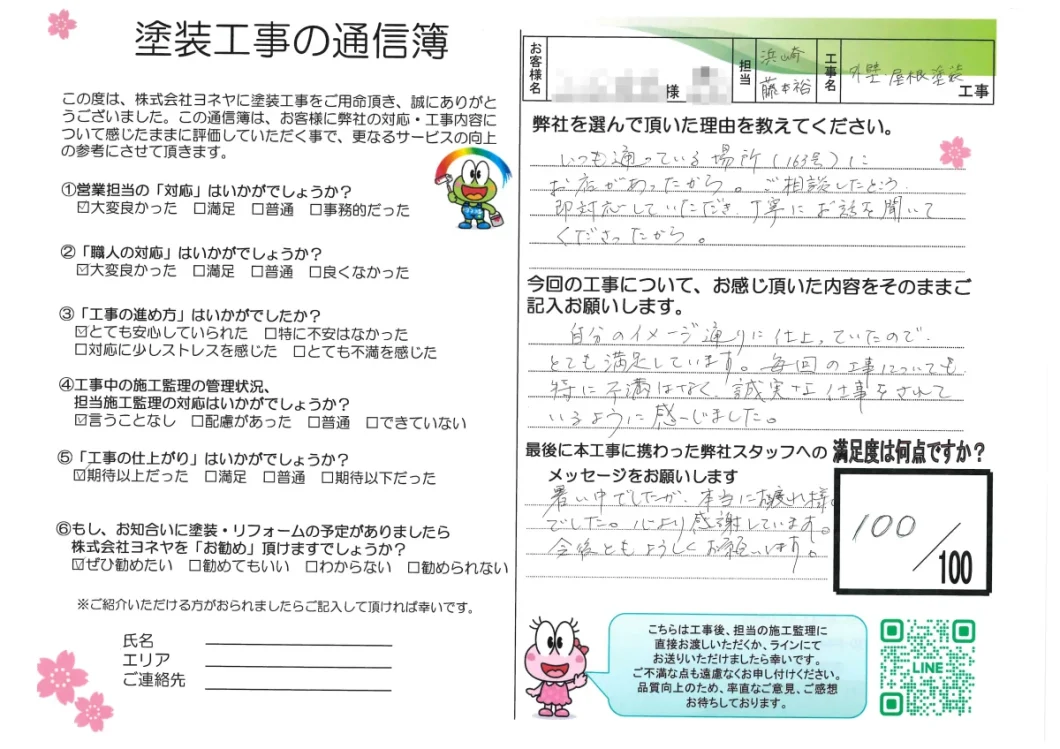 塗装工事の通信簿
この度は、株式会社ヨネヤに塗装工事をご用命頂き、誠にありがと
うございました。この通信簿は、お客様に弊社の対応・工事内容に
ついて感じたままに評価していただく事で、更なるサービスの向上
の参考にさせて頂きます。
①営業担当の「対応」はいかがでしょうか？
☑大変良かった □満足 □普通 □事務的だった
②「職人の対応」はいかがでしょうか？
☑大変良かった □満足 □普通 □良くなかった
③「工事の進め方」はいかがでしたか？
☑とても安心していられた □特に不安はなかった
□対応に少しストレスを感じた □とても不満を感じた
④工事中の施工監理の管理状況、
担当施工監理の対応はいかがでしょうか？
☑言うことなし □配慮があった □普通 □できていない
⑤「工事の仕上がり」はいかがでしょうか？
☑期待以上だった □満足 □普通 □期待以下だった
⑥もし、お知合いに塗装・リフォームの予定がありましたら
株式会社ヨネヤを「お勧め」頂けますでしょうか？
☑ぜひ勧めたい □勧めてもいい □わからない □勧められない
※ご紹介いただける方がおられましたらご記入して頂ければ幸いです。
氏名
エリア
ご連絡先
お客様名 様 担当 浜崎 藤本裕 工事名 外壁 屋根塗装 工事
弊社を選んで頂いた理由を教えてください。
いつも通っている場所（163号）に
お店があったから。ご相談したところ
即対応していただき、丁寧にお話を聞いて
くださったから。
今回の工事について、お感じ頂いた内容をそのままご
記入お願いします。
自分のイメージ通りに仕上っていたので
とても満足しています。毎回の工事についても
特に不満はなく、誠実な仕事をされて
いるように感じました。
最後に本工事に携わった弊社スタッフへの
メッセージをお願いします
暑い中でしたが、本当にお疲れ様
でした。心より感謝しています。
今後ともよろしくお願いします。
満足度は何点ですか？
100／100
こちらは工事後、担当の施工監理に
直接お渡しいただくか、ラインにて
お送りいただけましたら幸いです。
ご不満な点も遠慮なくお申し付けください。
品質向上のため、率直なご意見、ご感想
お待ちしております。
LINE